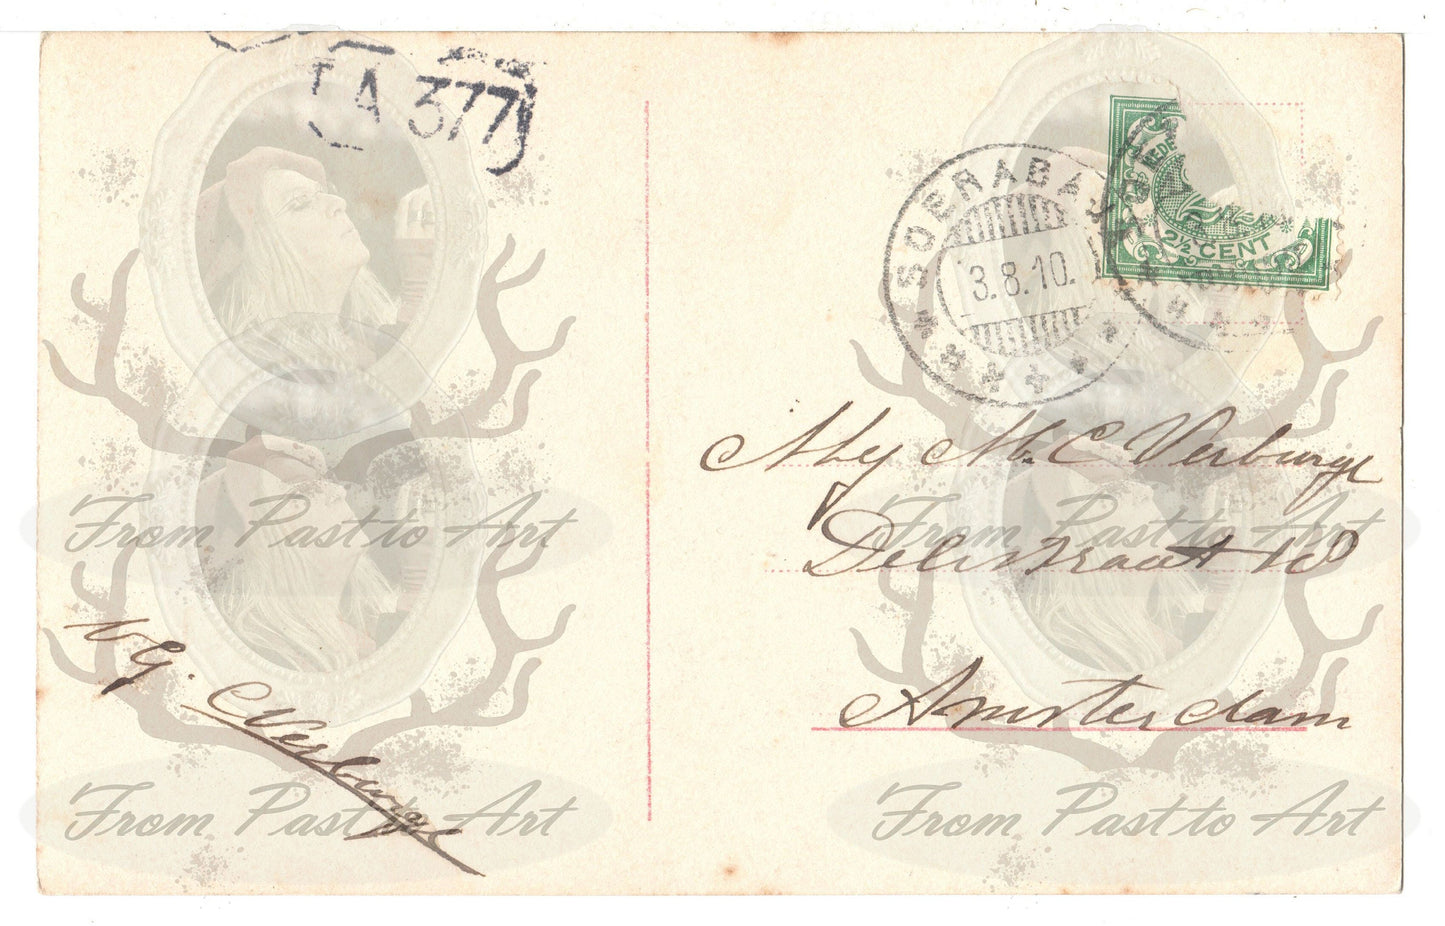 LA 377
SOERABAJA
3.8.10.
NEDE
2½ CENT
Mej M. C Verburge
Delistraat 10
Amsterdam
v/g. C Verburge
From Past to Art
From Past to Art
From Past to Art
From Past to Art